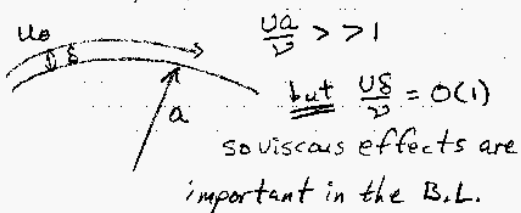 u₀
δ
Ua/ν >> 1
a
but Uδ/ν = O(1)
so viscous effects are
important in the B.L.